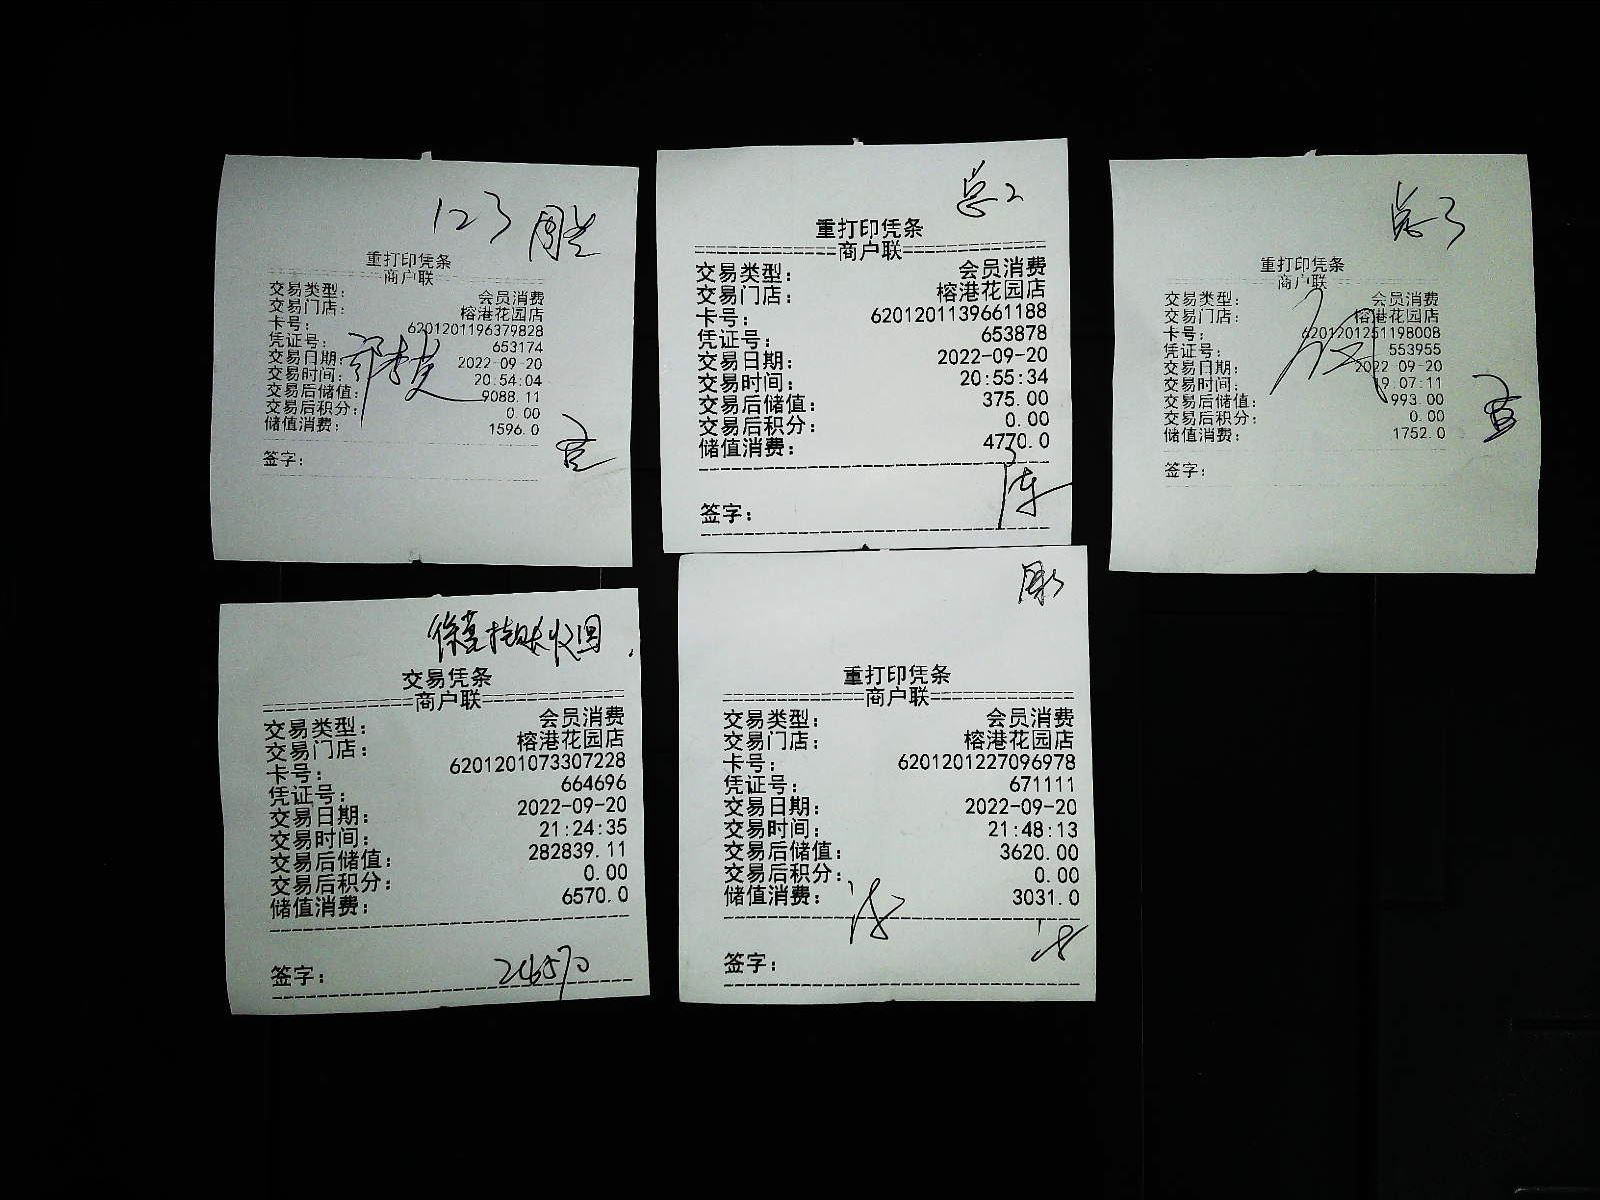 123
重打印凭条
商户联
交易类型: 会员消费
交易门店: 榕港花园店
卡号: 6201201196379828
凭证号: 653174
交易日期: 2022-09-20
交易时间: 20:54:04
交易后储值: 9088.11
交易后积分: 0.00
储值消费: 1596.0
签字:
总2
重打印凭条
商户联
交易类型: 会员消费
交易门店: 榕港花园店
卡号: 6201201139661188
凭证号: 653878
交易日期: 2022-09-20
交易时间: 20:55:34
交易后储值: 375.00
交易后积分: 0.00
储值消费: 4770.0
陈
签字:
总3
重打印凭条
商户联
交易类型: 会员消费
交易门店: 榕港花园店
卡号: 6201201251198008
凭证号: 553955
交易日期: 2022-09-20
交易时间: 9:07:11
交易后储值: 993.00
交易后积分: 0.00
储值消费: 1752.0
签字:
挂账收回
交易凭条
商户联
交易类型: 会员消费
交易门店: 榕港花园店
卡号: 6201201073307228
凭证号: 664696
交易日期: 2022-09-20
交易时间: 21:24:35
交易后储值: 282839.11
交易后积分: 0.00
储值消费: 6570.0
签字:
重打印凭条
商户联
交易类型: 会员消费
交易门店: 榕港花园店
卡号: 6201201227096978
凭证号: 671111
交易日期: 2022-09-20
交易时间: 21:48:13
交易后储值: 3620.00
交易后积分: 0.00
储值消费: 3031.0
签字: